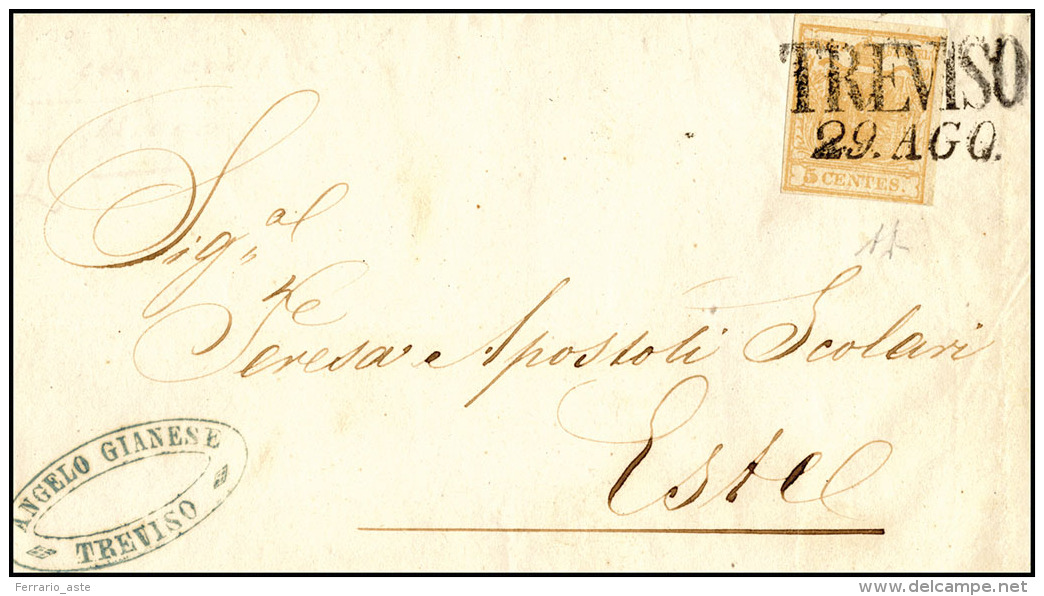 TREVISO
29. AGO.
5 CENTES.
Sig.al
Teresa Apostoli Scolari
Este
ANGELO GIANESE
TREVISO
Ferrario_aste
delcampe.net